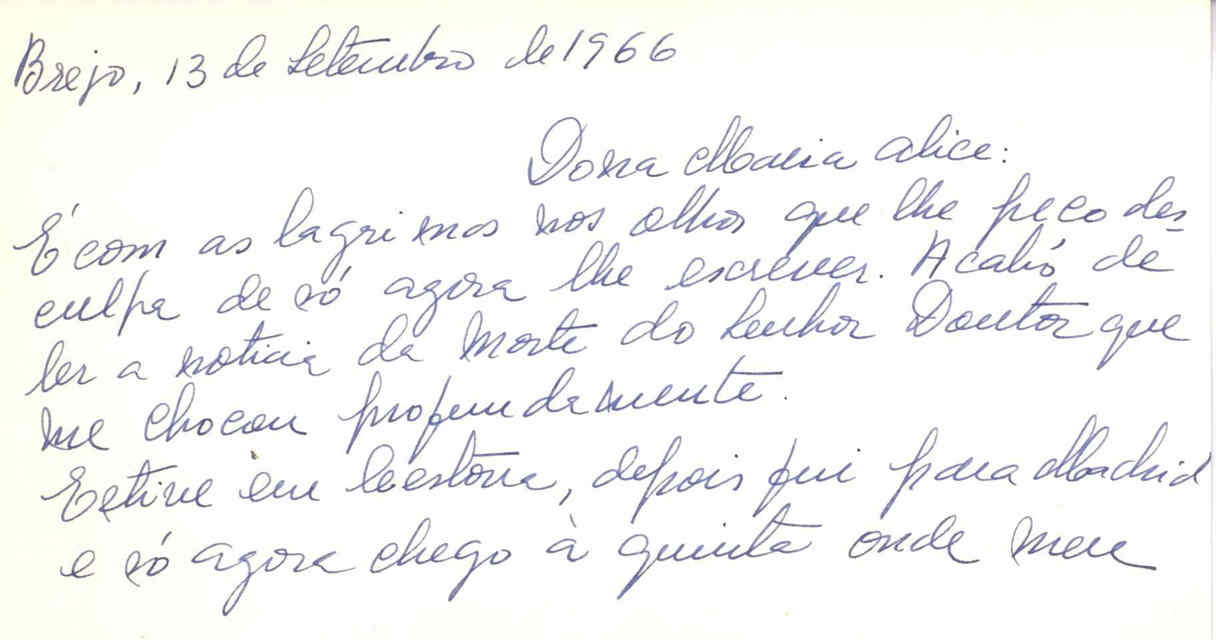 Brejo, 13 de Setembro de 1966
Dona Maria Alice:
É com as lagrimas nos olhos que lhe peço des=
culpa de só agora lhe escrever. Acabo de
ler a noticia da morte do Senhor Doutor que
me chocou profundamente.
Estive em , depois fui para Madrid
e só agora chego à quinta onde meu